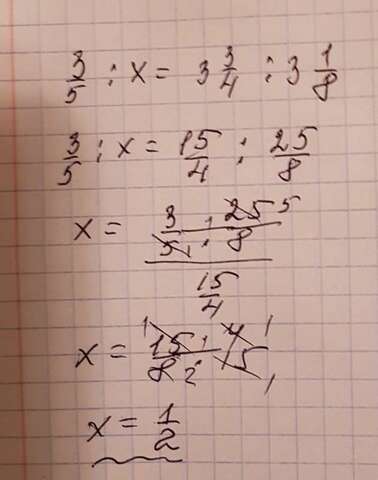 3/5 : x = 3 3/4 : 3 1/8
3/5 : x = 15/4 : 25/8
x = (3 · 25 5)/(5 1 · 8)
15/4
x = (1 15 · 4 1)/(8 2 · 15 1)
x = 1/2